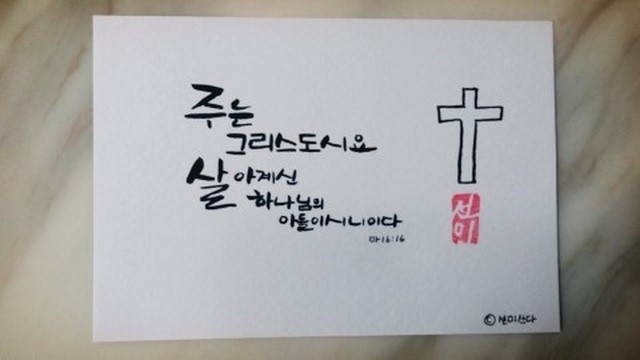 주는
그리스도시요
살아계신
하나님의
아들이시니이다
마16:16
선미
© 선미쓰다